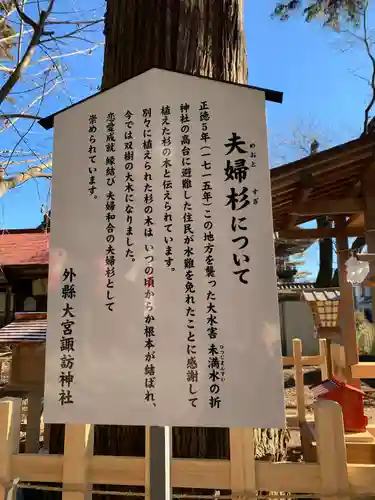 夫婦杉について
めおと すぎ
正徳5年(一七一五年)この地方を襲った大水害 未満水の折
神社の高台に避難した住民が水難を免れたことに感謝して
植えた杉の木と伝えられています。
別々に植えられた杉の木は いつの頃からか根本が結ばれ、
今では双樹の大木になりました。
恋愛成就 縁結び 夫婦和合の夫婦杉として
崇められています。
外縣 大宮諏訪神社